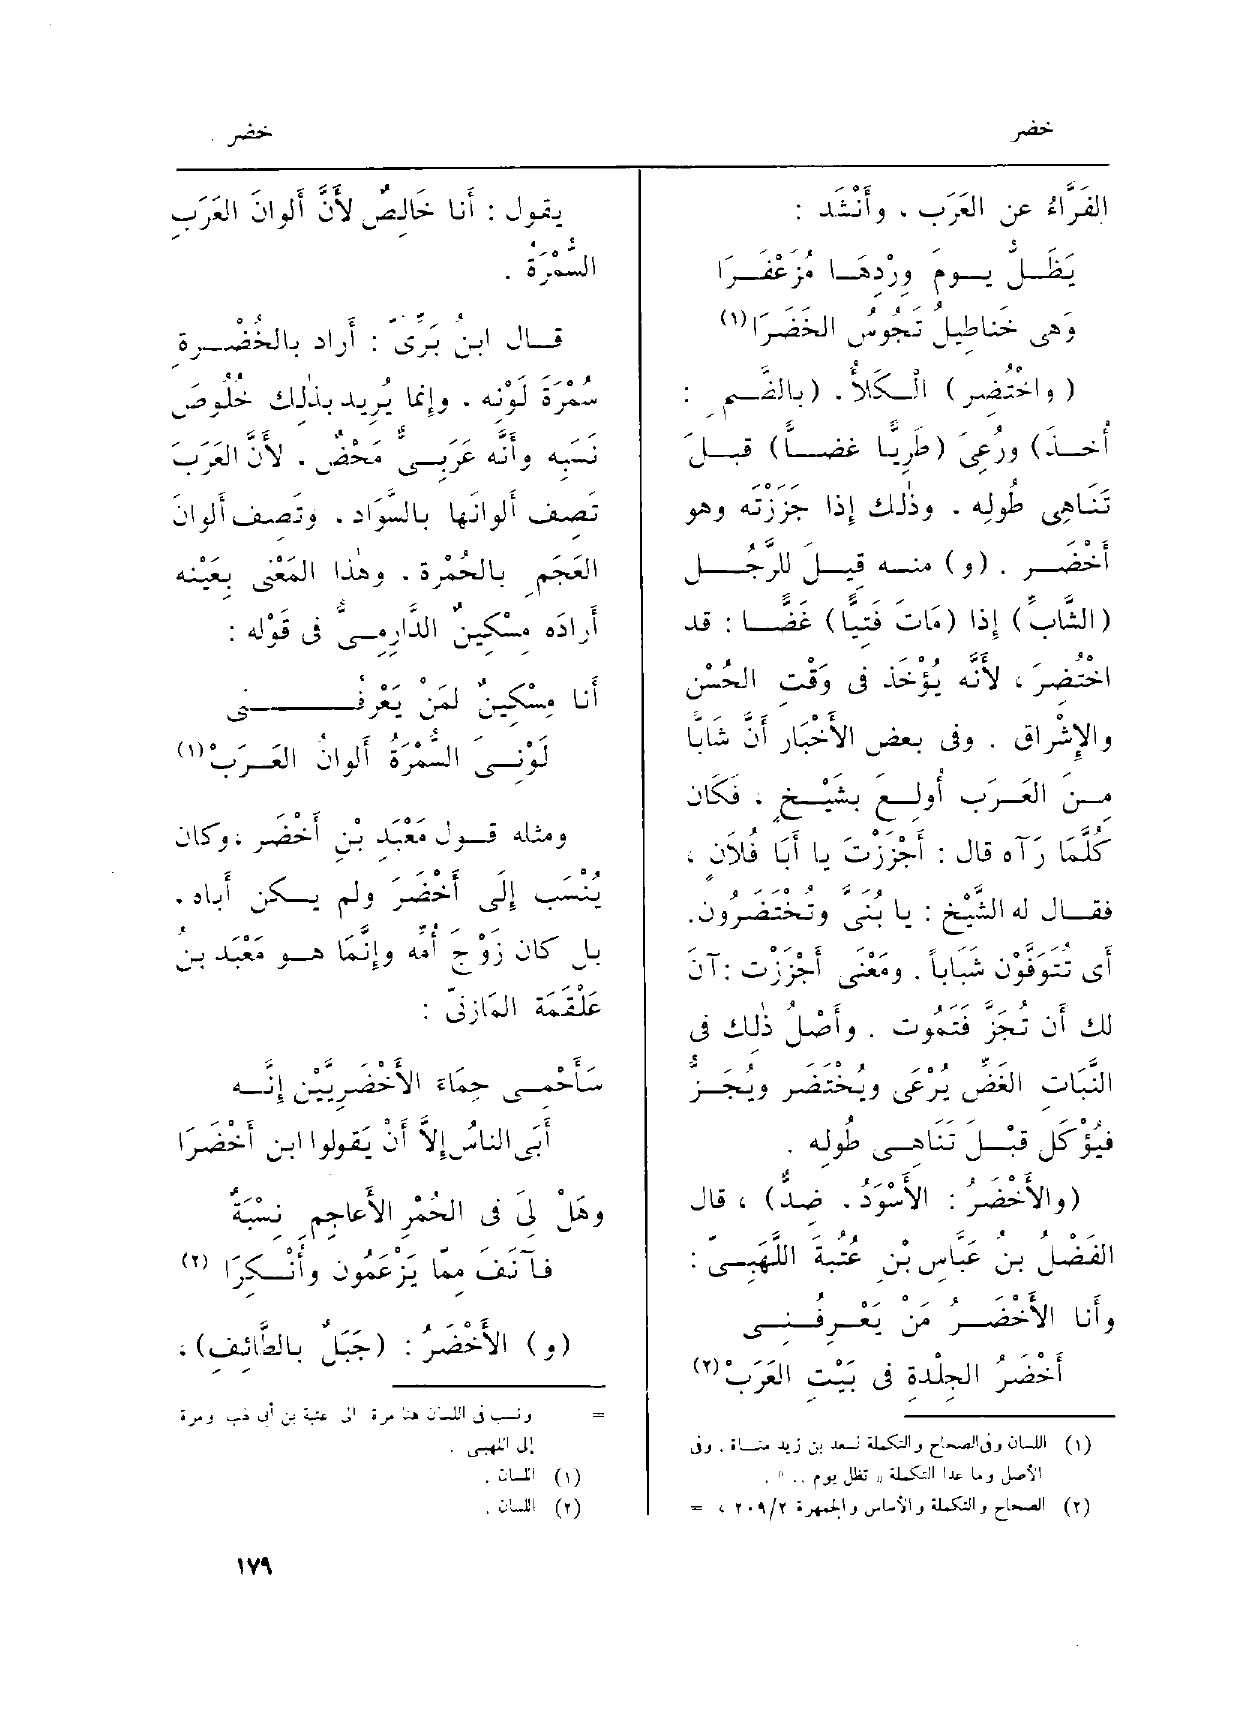 خضر
خضر
الفَرَّاءُ عن العَرَب . وأَنْشَد :
يَظَلُّ يومَ وِرْدِهَا مُزَعْفَرَا
وَهى خَناطِيلُ تَجُوسُ الخَضَرَا(١)
( واخْتُضِر ) الْكَلأُ . (بالضَّمِ :
أُخِذَ) ورُعِىَ (طَرِيًّا غضًّا) قبلَ
تَنَاهِى طُولِه . وذٰلك إذا جَزَزْتَه وهو
أَخْضَر . (و) منه قِيلَ للرَّجُل
(الشَّابِّ) إذا (مَاتَ فَتِيًّا) غَضًّا : قد
اخْتُضِرَ ، لأَنَّه يُؤْخَذ فى وَقْت الحُسْن
والإِشْراق . وفى بعض الأَخْبَار أَنَّ شَابًّا
مِنَ العَرَب أُولِعَ بشَيْخٍ ، فكَان
كُلَّمَا رَآه قال : أَجْزَزْتَ يا أَبَا فُلَانٍ ،
فقال له الشَّيْخ : يا بُنَىَّ وتُخْتَضَرُون.
أَى تُتَوَفَّوْن شَبَاباً . ومَعْنَى أَجْزَزْت : آنَ
لك أَن تُجَزَّ فَتَمُوت . وأَصْلُ ذٰلك فى
النَّبَات الغَضِّ يُرْعَى ويُخْتَضَر ويُجَزُّ
فيُؤْكَل قَبْلَ تَنَاهِى طُولِه .
(والأَخْضَرُ : الأَسْوَدُ . ضِدٌّ) ، قال
الفَضْلُ بنُ عَبَّاسِ بْنِ عُتْبَةَ اللَّهَبِىّ :
وأَنا الأَخْضَرُ مَنْ يَعْرِفُنِى
أَخْضَرُ الجِلْدةِ فى بَيْتِ العَرَبْ(٢)
(١) اللسان وفى الصحاح والتكملة لسعد بن زيد مناة . وفى
الأصل وما عدا التكملة « تظل يوم .. » .
(٢) الصحاح والتكملة والأساس والجمهرة ٢٠٩/٢ ، =
يقول : أَنا خَالِصٌ لأَنَّ أَلوانَ العَرَبِ
السُّمْرَةُ .
قال ابنُ بَرِّىّ : أَراد بالخُضْرةِ
سُمْرَةَ لَوْنِه . وإنما يُرِيد بذٰلك خُلُوصَ
نَسَبِه وأَنَّه عَرَبِىٌّ مَحْضٌ . لأَنَّ العَرَبَ
تَصِف أَلوانَها بالسَّوَاد . وتَصِف أَلوانَ
العَجَمِ بالحُمْرة . وهٰذا المَعْنَى بِعَيْنِه
أَرادَه مِسْكِينٌ الدَّارِمِىُّ فى قَوْلِه :
أَنا مِسْكِينٌ لمَنْ يَعْرِفُنِى
لَوْنِىَ السُّمْرَةُ أَلوانُ العَرَبْ(١)
ومثله قول مَعْبَد بْنِ أَخْضَر ، وكان
يُنْسَب إِلَى أَخْضَرَ ولم يكن أَباه .
بل كان زَوْجَ أُمِّه وإِنَّمَا هو مَعْبَد بنُ
عَلْقَمَة المَازِنِىّ :
سَأَحْمِى حِمَاءَ الأَخْضَرِيِّينَ إِنَّه
أَبَى الناسُ إِلاَّ أَنْ يَقولوا ابن أَخْضَرَا
وهَلْ لِىَ فى الحُمْرِ الأَعَاجِمِ نِسْبَةٌ
فآنَفَ مِمَّا يَزْعُمُون وأُنْكِرَا (٢)
(و) الأَخْضَرُ : (جَبَلٌ بالطَّائِفِ) ،
= ونسب فى اللسان هنا مرة الى عتبة بن أبى لهب ومرة
إلى اللهبى .
(١) اللسان .
(٢) اللسان .
١٧٩